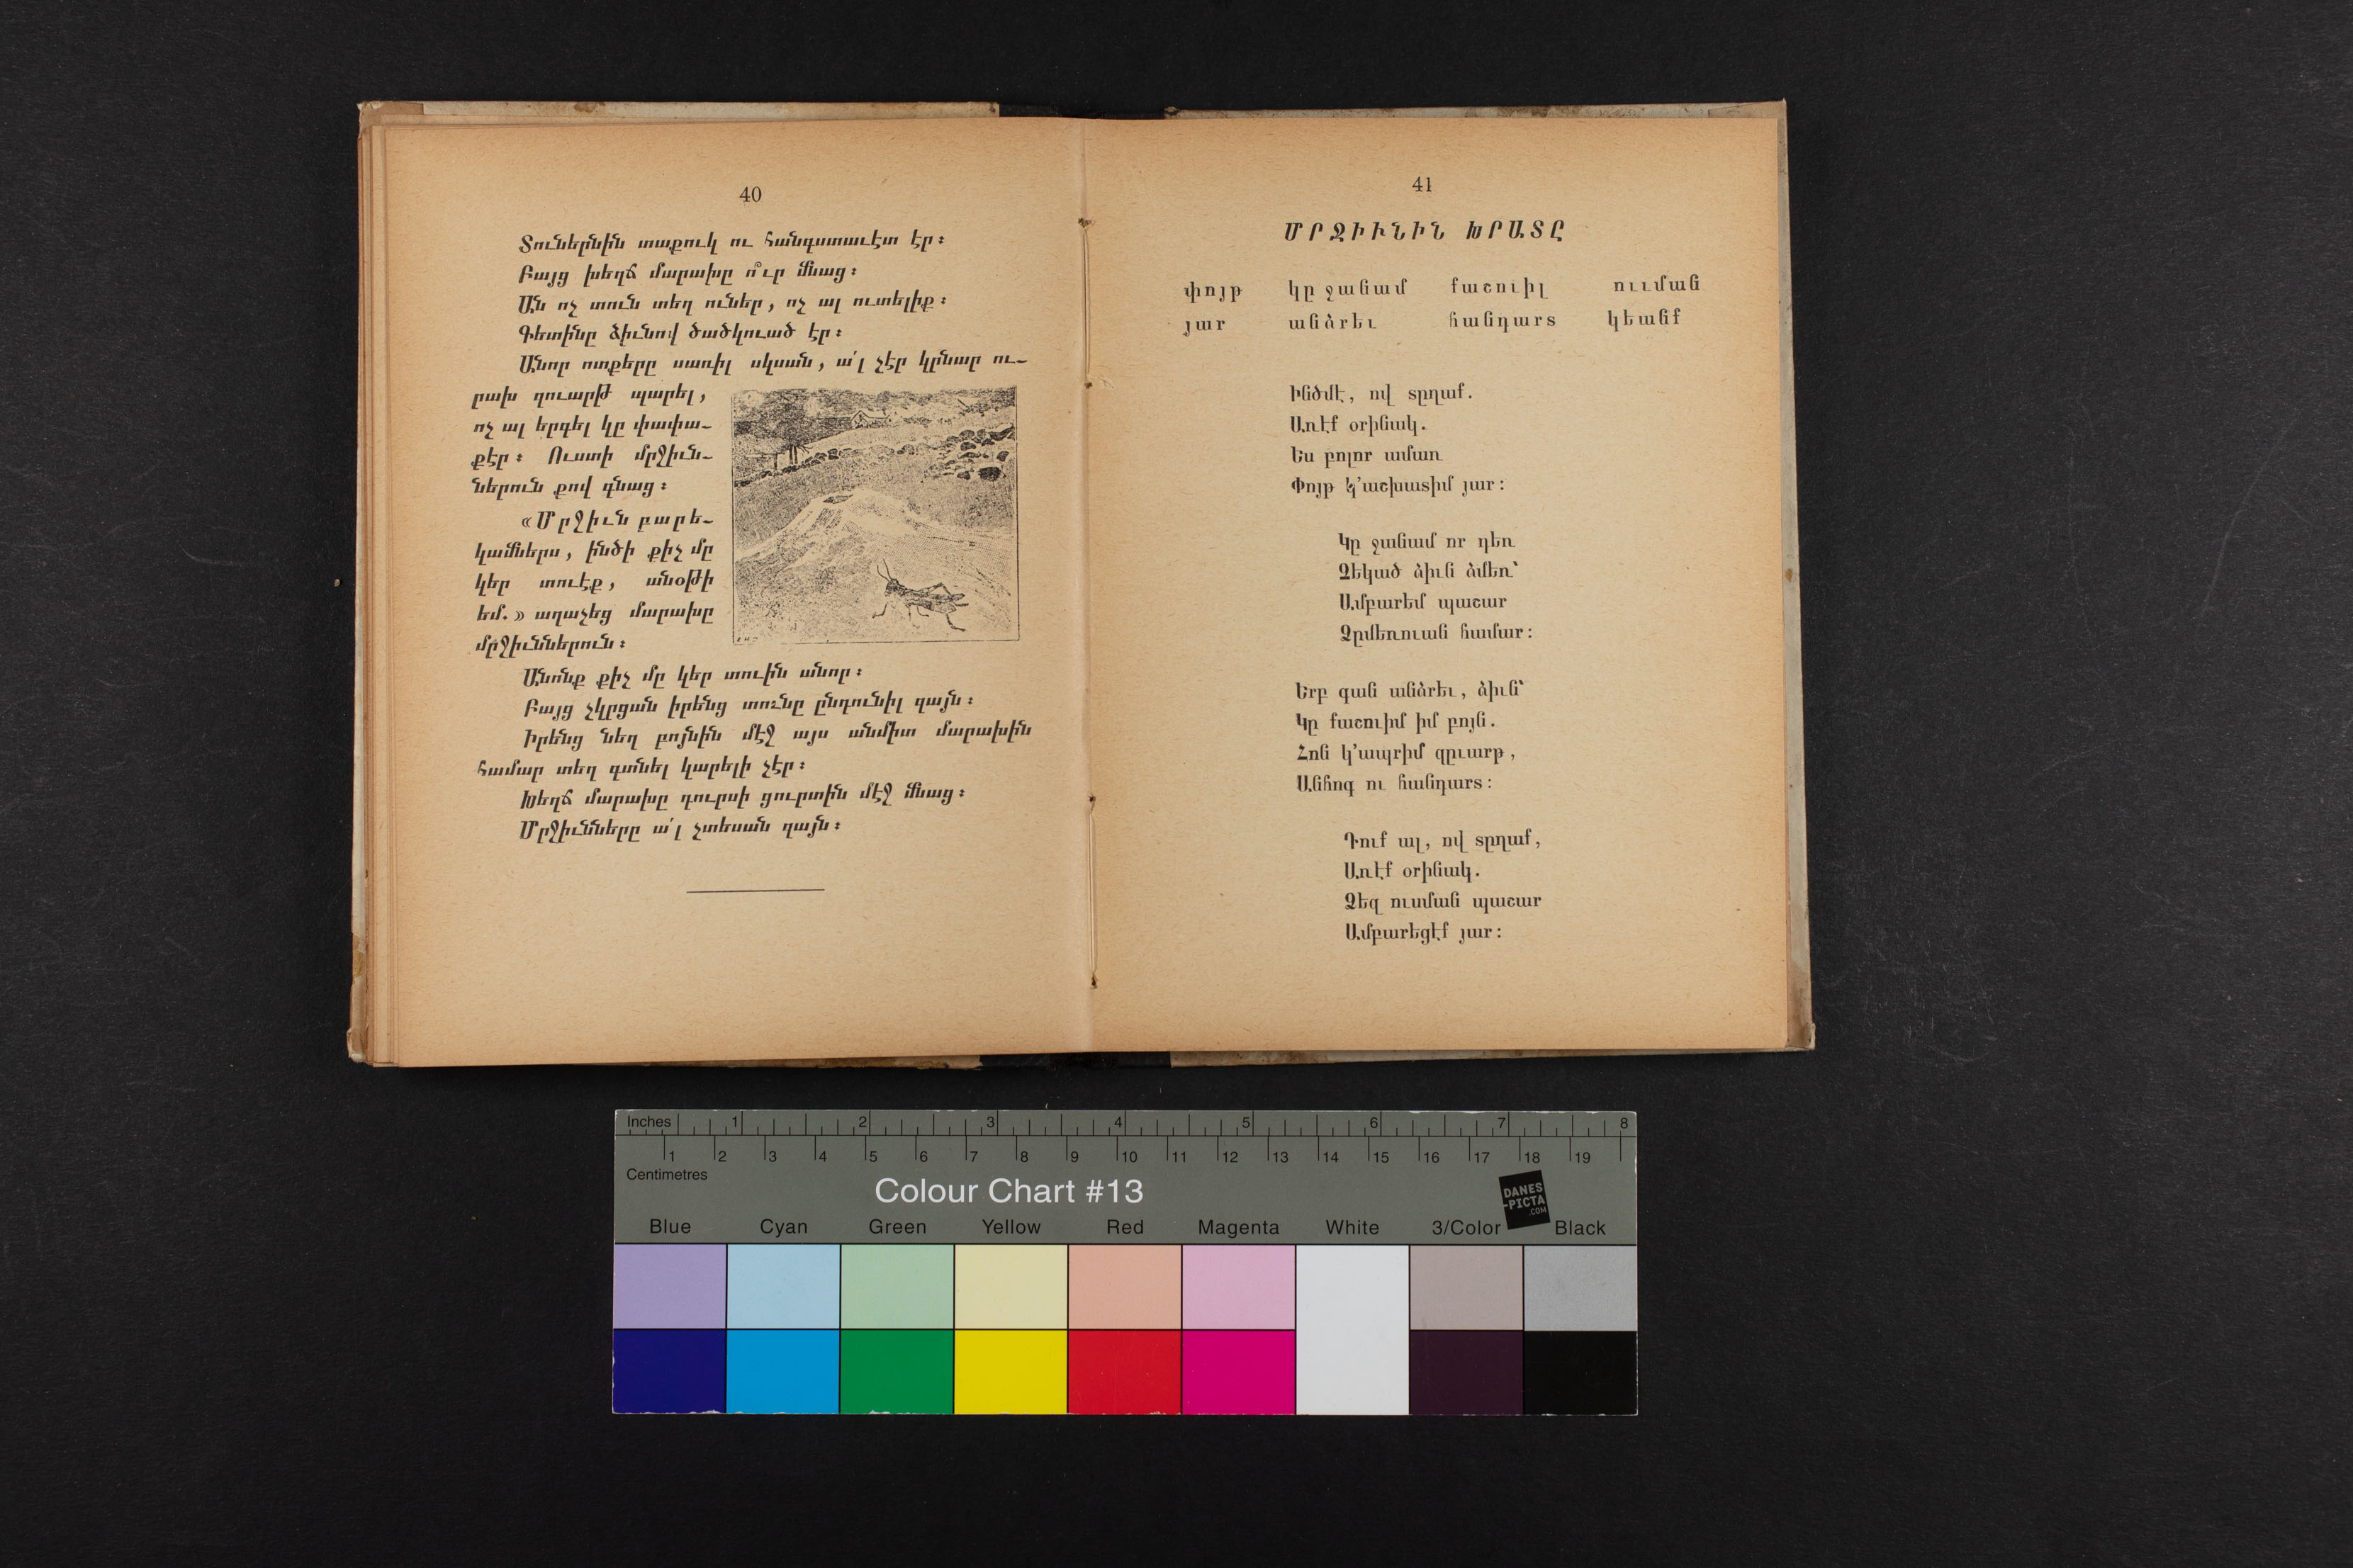 40
Տուներնին տաքուկ ու հանգստաւէտ էր։
Բայց խեղճ մարախը ո՞ւր մնաց։
Ան ոչ տուն տեղ ունէր, ոչ ալ ուտելիք։
Գետինը ձիւնով ծածկուած էր։
Անոր ոտքերը սառիլ սկսան, ա՛լ չէր կրնար ու-
րախ զուարթ պարել,
ոչ ալ երգել կը փափա-
քէր։ Ուստի մրջիւն-
ներուն քով գնաց։
«Մրջիւն բարե-
կամներս, ինծի քիչ մը
կեր տուէք, անօթի
եմ.» աղաչեց մարախը
մրջիւններուն։
Անոնք քիչ մը կեր տուին անոր։
Բայց չկրցան իրենց տունը ընդունիլ զայն։
Իրենց նեղ բոյնին մէջ այս անմիտ մարախին
համար տեղ գտնել կարելի չէր։
Խեղճ մարախը դուրսի ցուրտին մէջ մնաց։
Մրջիւնները ա՛լ չտեսան զայն։
41
ՄՐՋԻՒՆԻՆ ԽՐԱՏԸ
փոյթ կը ջանամ քաշուիլ ուսման
յար անձրեւ հանդարտ կեանք
Ինծմէ, ով տըղաք.
Առէք օրինակ.
Ես բոլոր ամառ
Փոյթ կ՚աշխատիմ յար։
Կը ջանամ որ դեռ
Չեկած ձիւն ձմեռ՝
Ամբարեմ պաշար
Ձըմեռուան համար։
Երբ գան անձրեւ, ձիւն՝
Կը քաշուիմ իմ բոյն.
Հոն կ՚ապրիմ զըւարթ,
Անհոգ ու հանդարտ։
Դուք ալ, ով տըղաք,
Առէք օրինակ.
Ձեզ ուսման պաշար
Ամբարեցէք յար։
Inches 1 2 3 4 5 6 7 8
1 2 3 4 5 6 7 8 9 10 11 12 13 14 15 16 17 18 19
Centimetres
Colour Chart #13
DANES
-PICTA
.COM
Blue Cyan Green Yellow Red Magenta White 3/Color Black